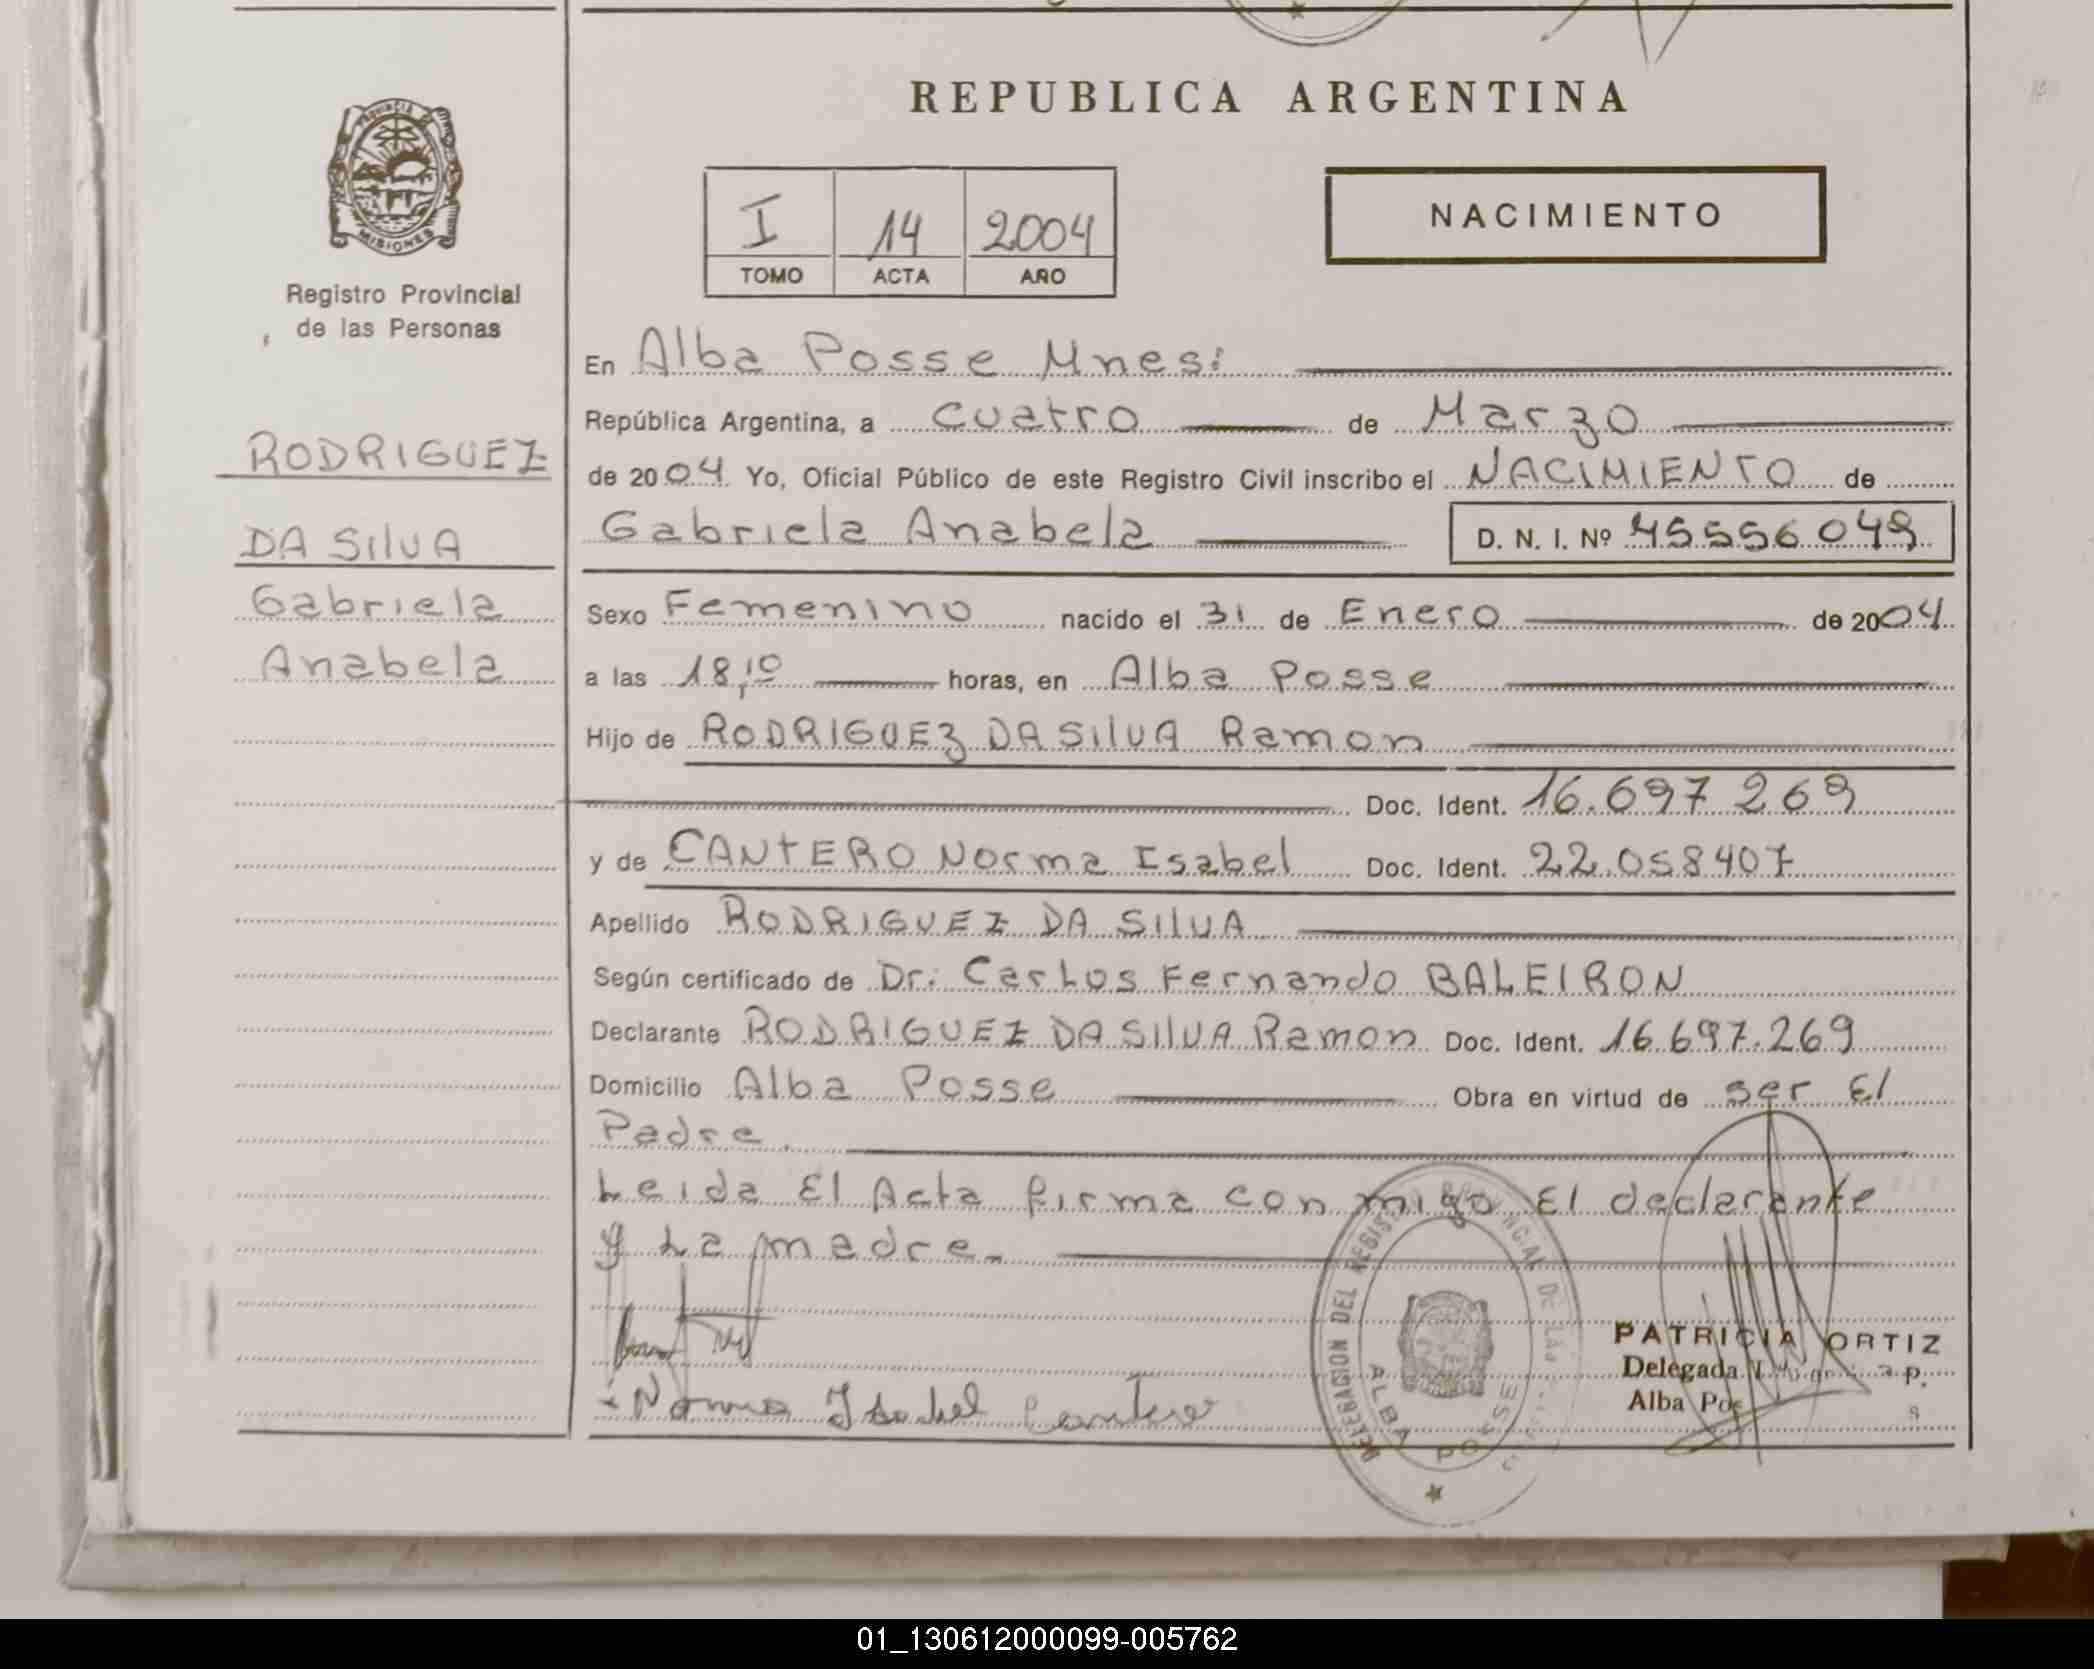 REPUBLICA ARGENTINA
PROVINCIA DE
MISIONES
Registro Provincial
de las Personas
I 14 2004
TOMO ACTA AÑO
NACIMIENTO
RODRIGUEZ
DA SilVA
Gabriela
Anabela
En Alba Posse Mnes:
República Argentina, a cuatro de Marzo
de 2004 Yo, Oficial Público de este Registro Civil inscribo el NACIMIENTO de
Gabriela Anabela D. N. I. Nº 45556049
Sexo Femenino nacido el 31 de Enero de 2004
a las 18,10 horas, en Alba Posse
Hijo de RODRIGUEZ DA SilVA Ramon
Doc. Ident. 16.697 269
y de CANTERO Norma Isabel Doc. Ident. 22.058407
Apellido RODRIGUEZ DA SilVA
Según certificado de Dr: Carlos Fernando BALEIRON
Declarante RODRIGUEZ DA SilVA Ramon Doc. Ident. 16.697.269
Domicilio Alba Posse Obra en virtud de ser El
Padre.
Leida El Acta firma con migo El declarante
y La madre.
Norma Isabel Cantero
DELEGACION DEL REGISTRO PROVINCIAL DE LAS
ALBA POSSE
PATRICIA ORTIZ
Delegada
Alba Pos
01_130612000099-005762